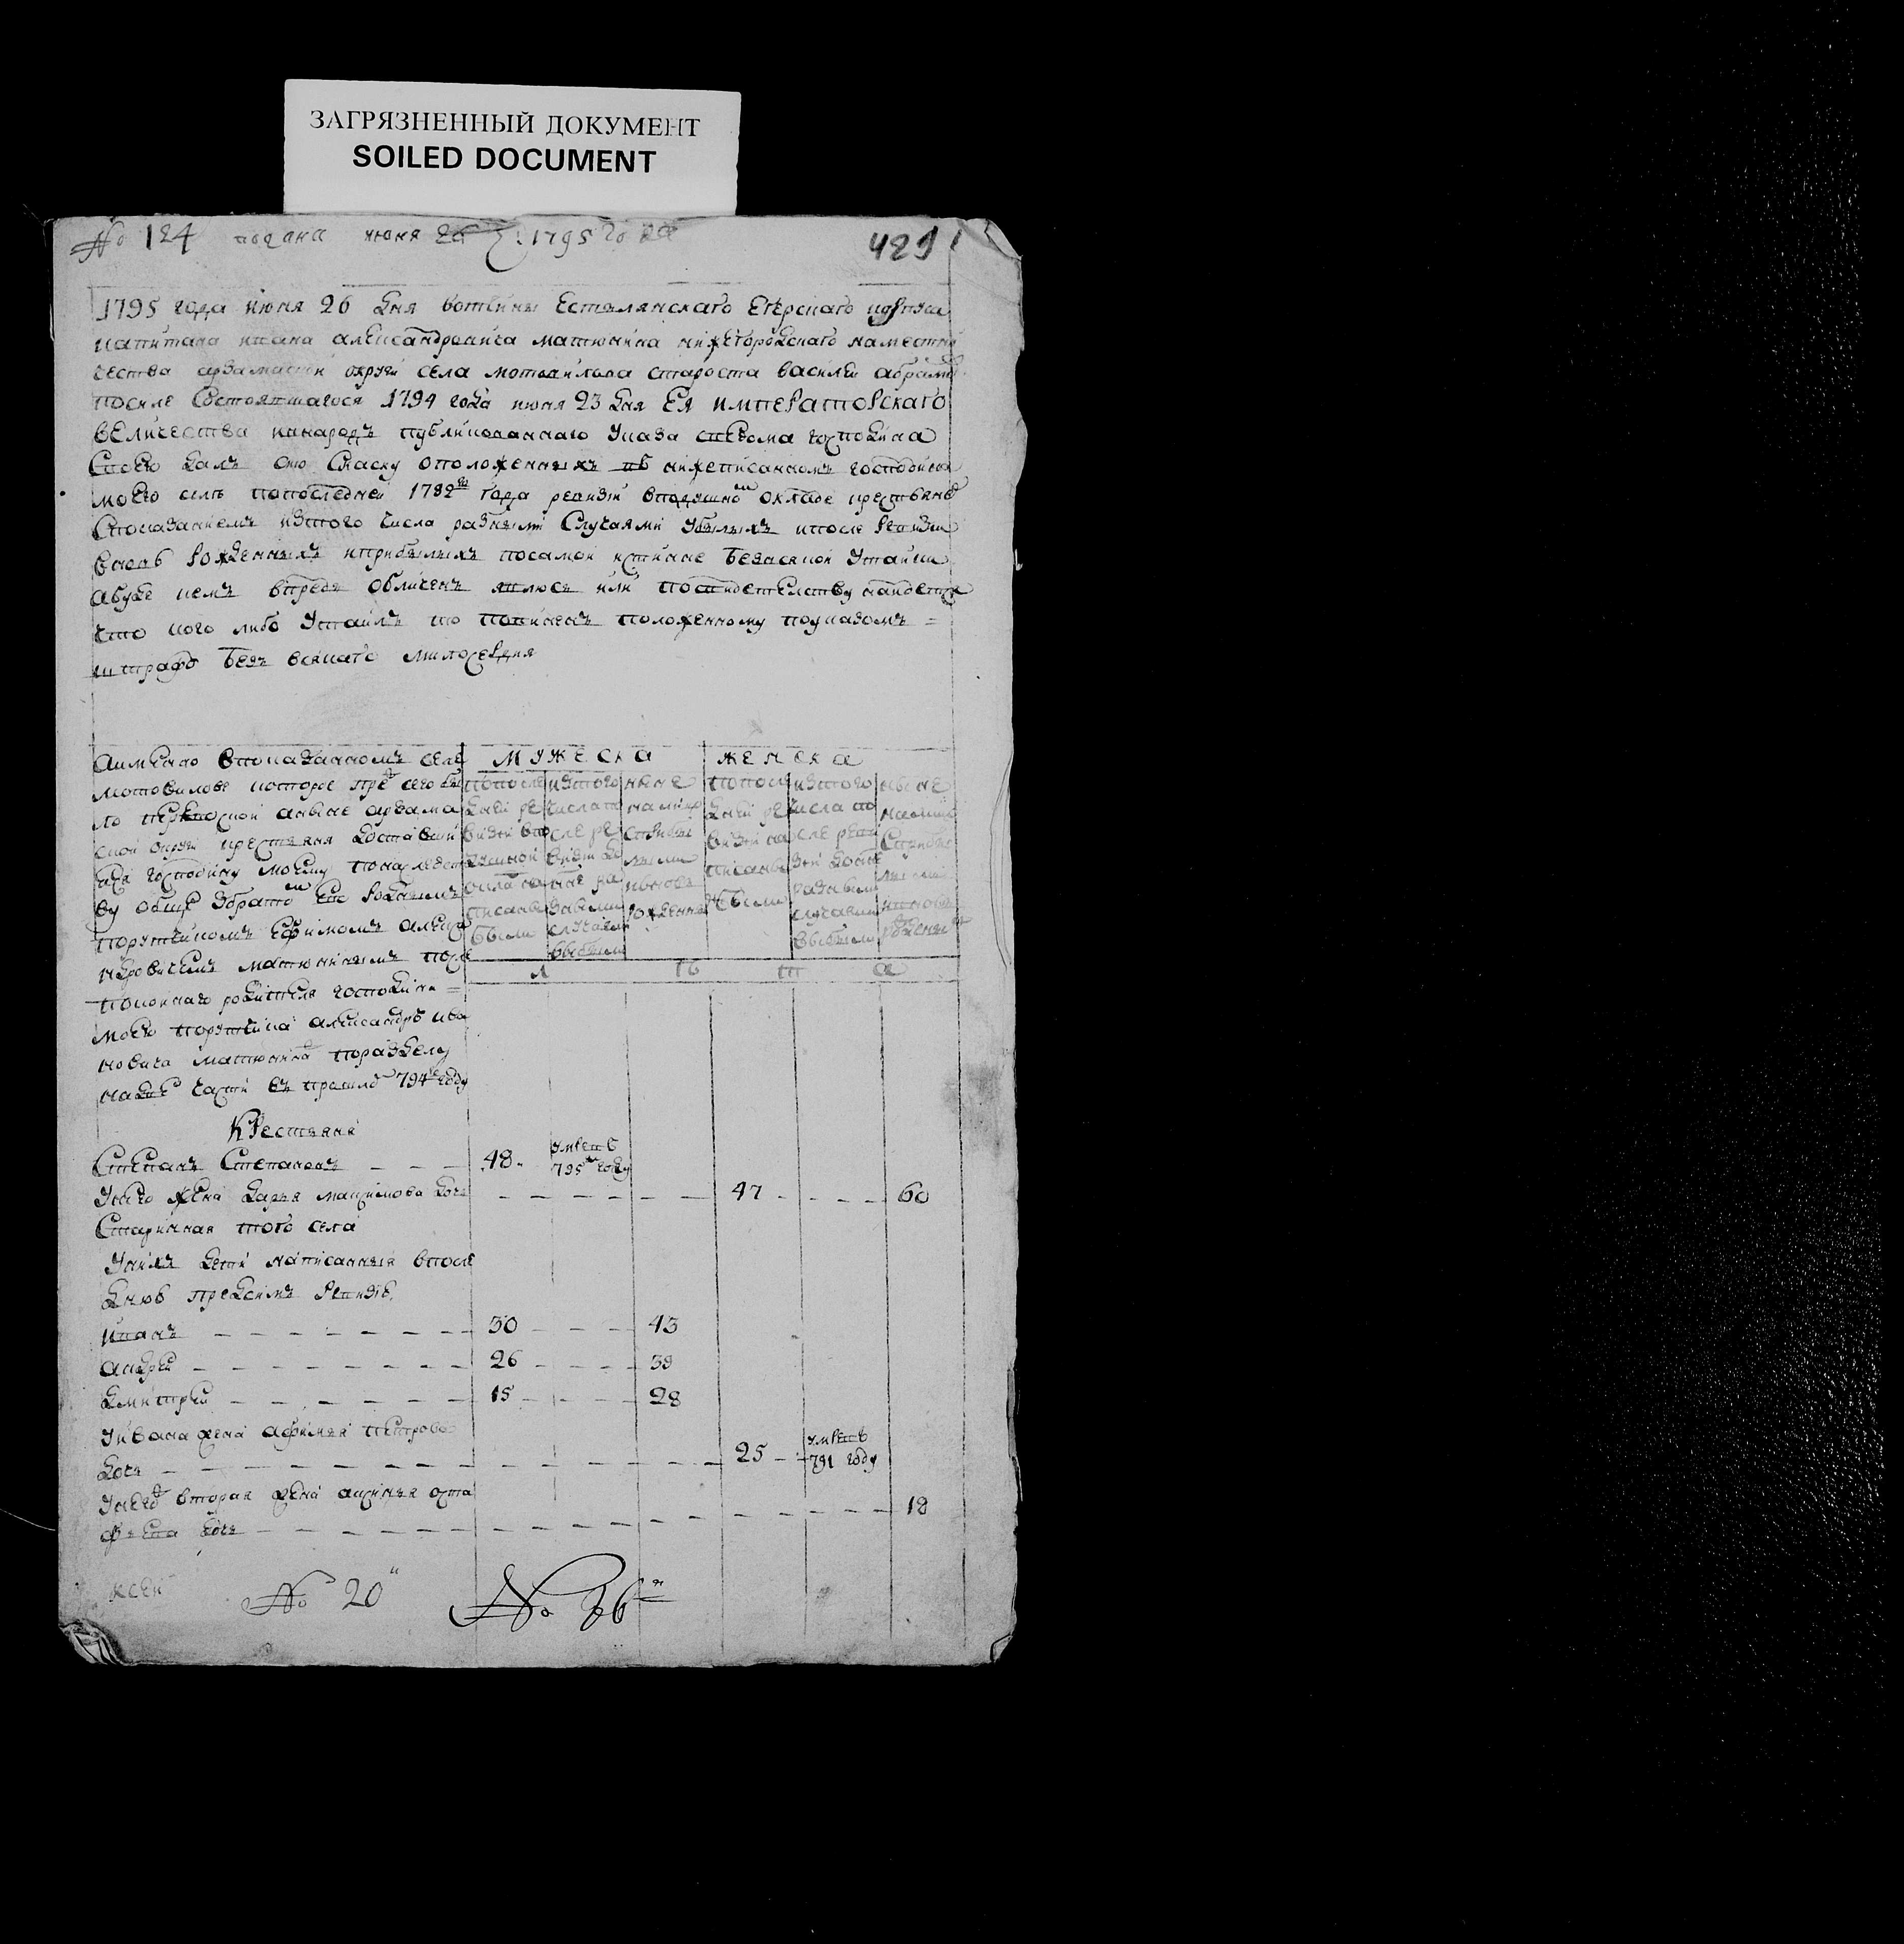 ЗАГРЯЗНЕННЫЙ ДОКУМЕНТ
SOILED DOCUMENT
№ 124 подана июня 26 1795 го
429
1795 года июня 26 дня вотчины Естлянскаго Егерскаго корпуса
капитана ивана александровича матюнина нижегородскаго наместни
чества арзамаской округи села мотовилова староста василей абрамов
посиле Состоявшагося 1794 года июня 23 дня Ея императорскаго
величества внародъ публикованнаго Указа сведома господина
Своего далъ сию Скаску оположенныхъ въ нижеписанномъ господина
моего селе попоследней 1782й года ревизии вподушной окладе крестьяне
Споказаниемъ изтого числа разными Случаями Убылыхъ ипосле Ревизии
вновь Рожденныхъ иприбылыхъ посамой истинне Безвсякой Утайки
абуде чемъ впредь Обличенъ явлюсь или посвидетельству найдется
что кого либо Утаилъ то повиненъ положенному поуказомъ =
штрафу Безъ всякаго милосердия
Аимянно впоказанномъ селе
мотовилове которое пред сего бы
ло ной аныне арзама
ской округи крестьяня доставши
яся господину моему понаследст
ву обще Збратом ево Роднымъ
порутчикомъ Ефимомъ алекса
ндровичемъ матюнинымъ после
покойнаго родителя господина =
моего порутчика александра ива
новича матюнина поразделу
начасти въ прошло 794м году
мужеска
женска
попосле
дней ре
визии впо
душной
оклад на
писаны
были
изтого
числа по
сле ре
визии до
ныне ра
зными
случаи
выбыло
ныне
налицо
Сприбы
лыми
ивновь
рожденны
попосле
дней ре
визии на
писаны
были
изтого
числа по
сле реви
зии
разными
случаями
выбыло
ныне
налицо
Сприбы
лыми
ивновь
рожденны
л ѣ т а
Крестьяня
Степанъ Степановъ 48 умре 795м году
Унего жена Дарья максимова дочь 47 60
Старинная того села
Унихъ дети написанныя впосле
днюю предсимъ Ревизие,
иванъ 30 43
андрей 26 39
дмитрей 15 28
Уивана жена афимья петрова
дочь 25 умре 791 году
Унего вторая жена аксинья оста
фьева дочь 18
№ 20